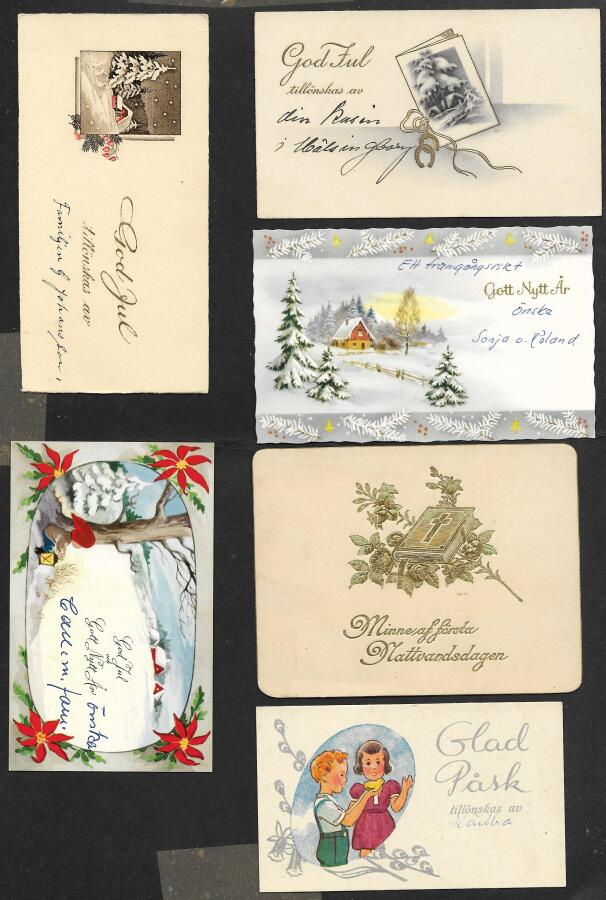 God Jul
tillönskas av
Familjen G Johansson
God Jul
tillönskas av
din Kusin
i Hälsingborg
Ett framgångsrikt
Gott Nytt År
önska
Sonja o. Roland
God Jul
och
Gott Nytt År önskar
m. fam.
Minne af första
Nattvardsdagen
Glad
Påsk
tillönskas av